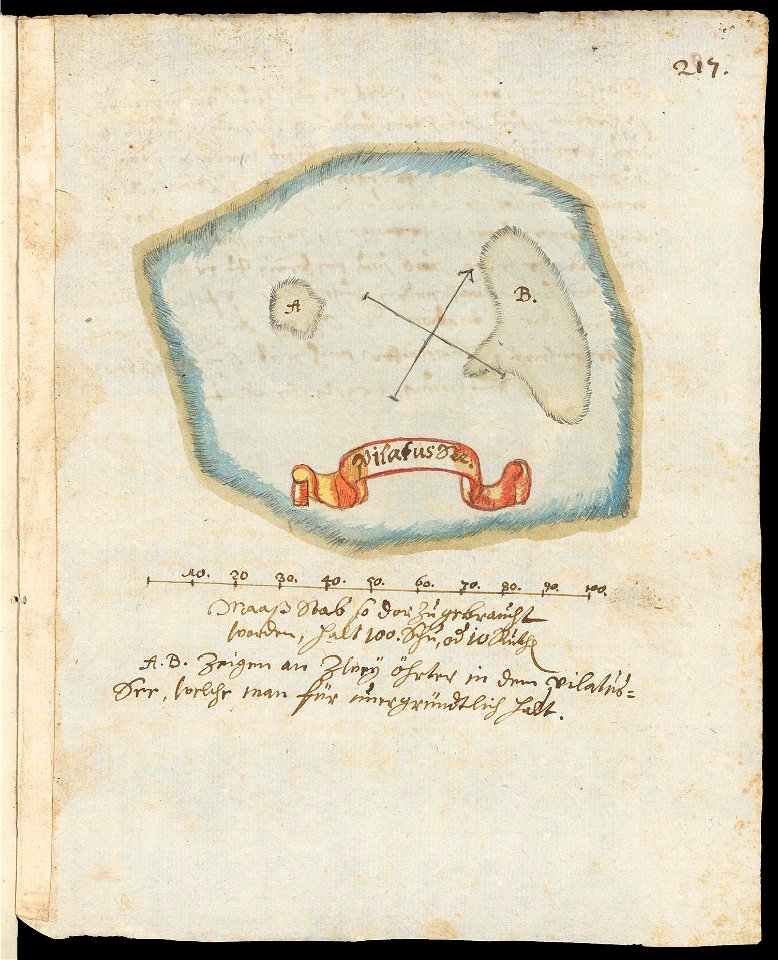 217.
A
B.
Pilatus See.
10. 20 30. 40. 50. 60. 70. 80. 90. 100.
Maaß Stab so darzu gebraucht
worden, halt 100. Schü, od 10 Ruthe
A. B. Zeigen an Zweÿ öhrter in dem Pilatus=
See, welche man für unergründtlich halt.